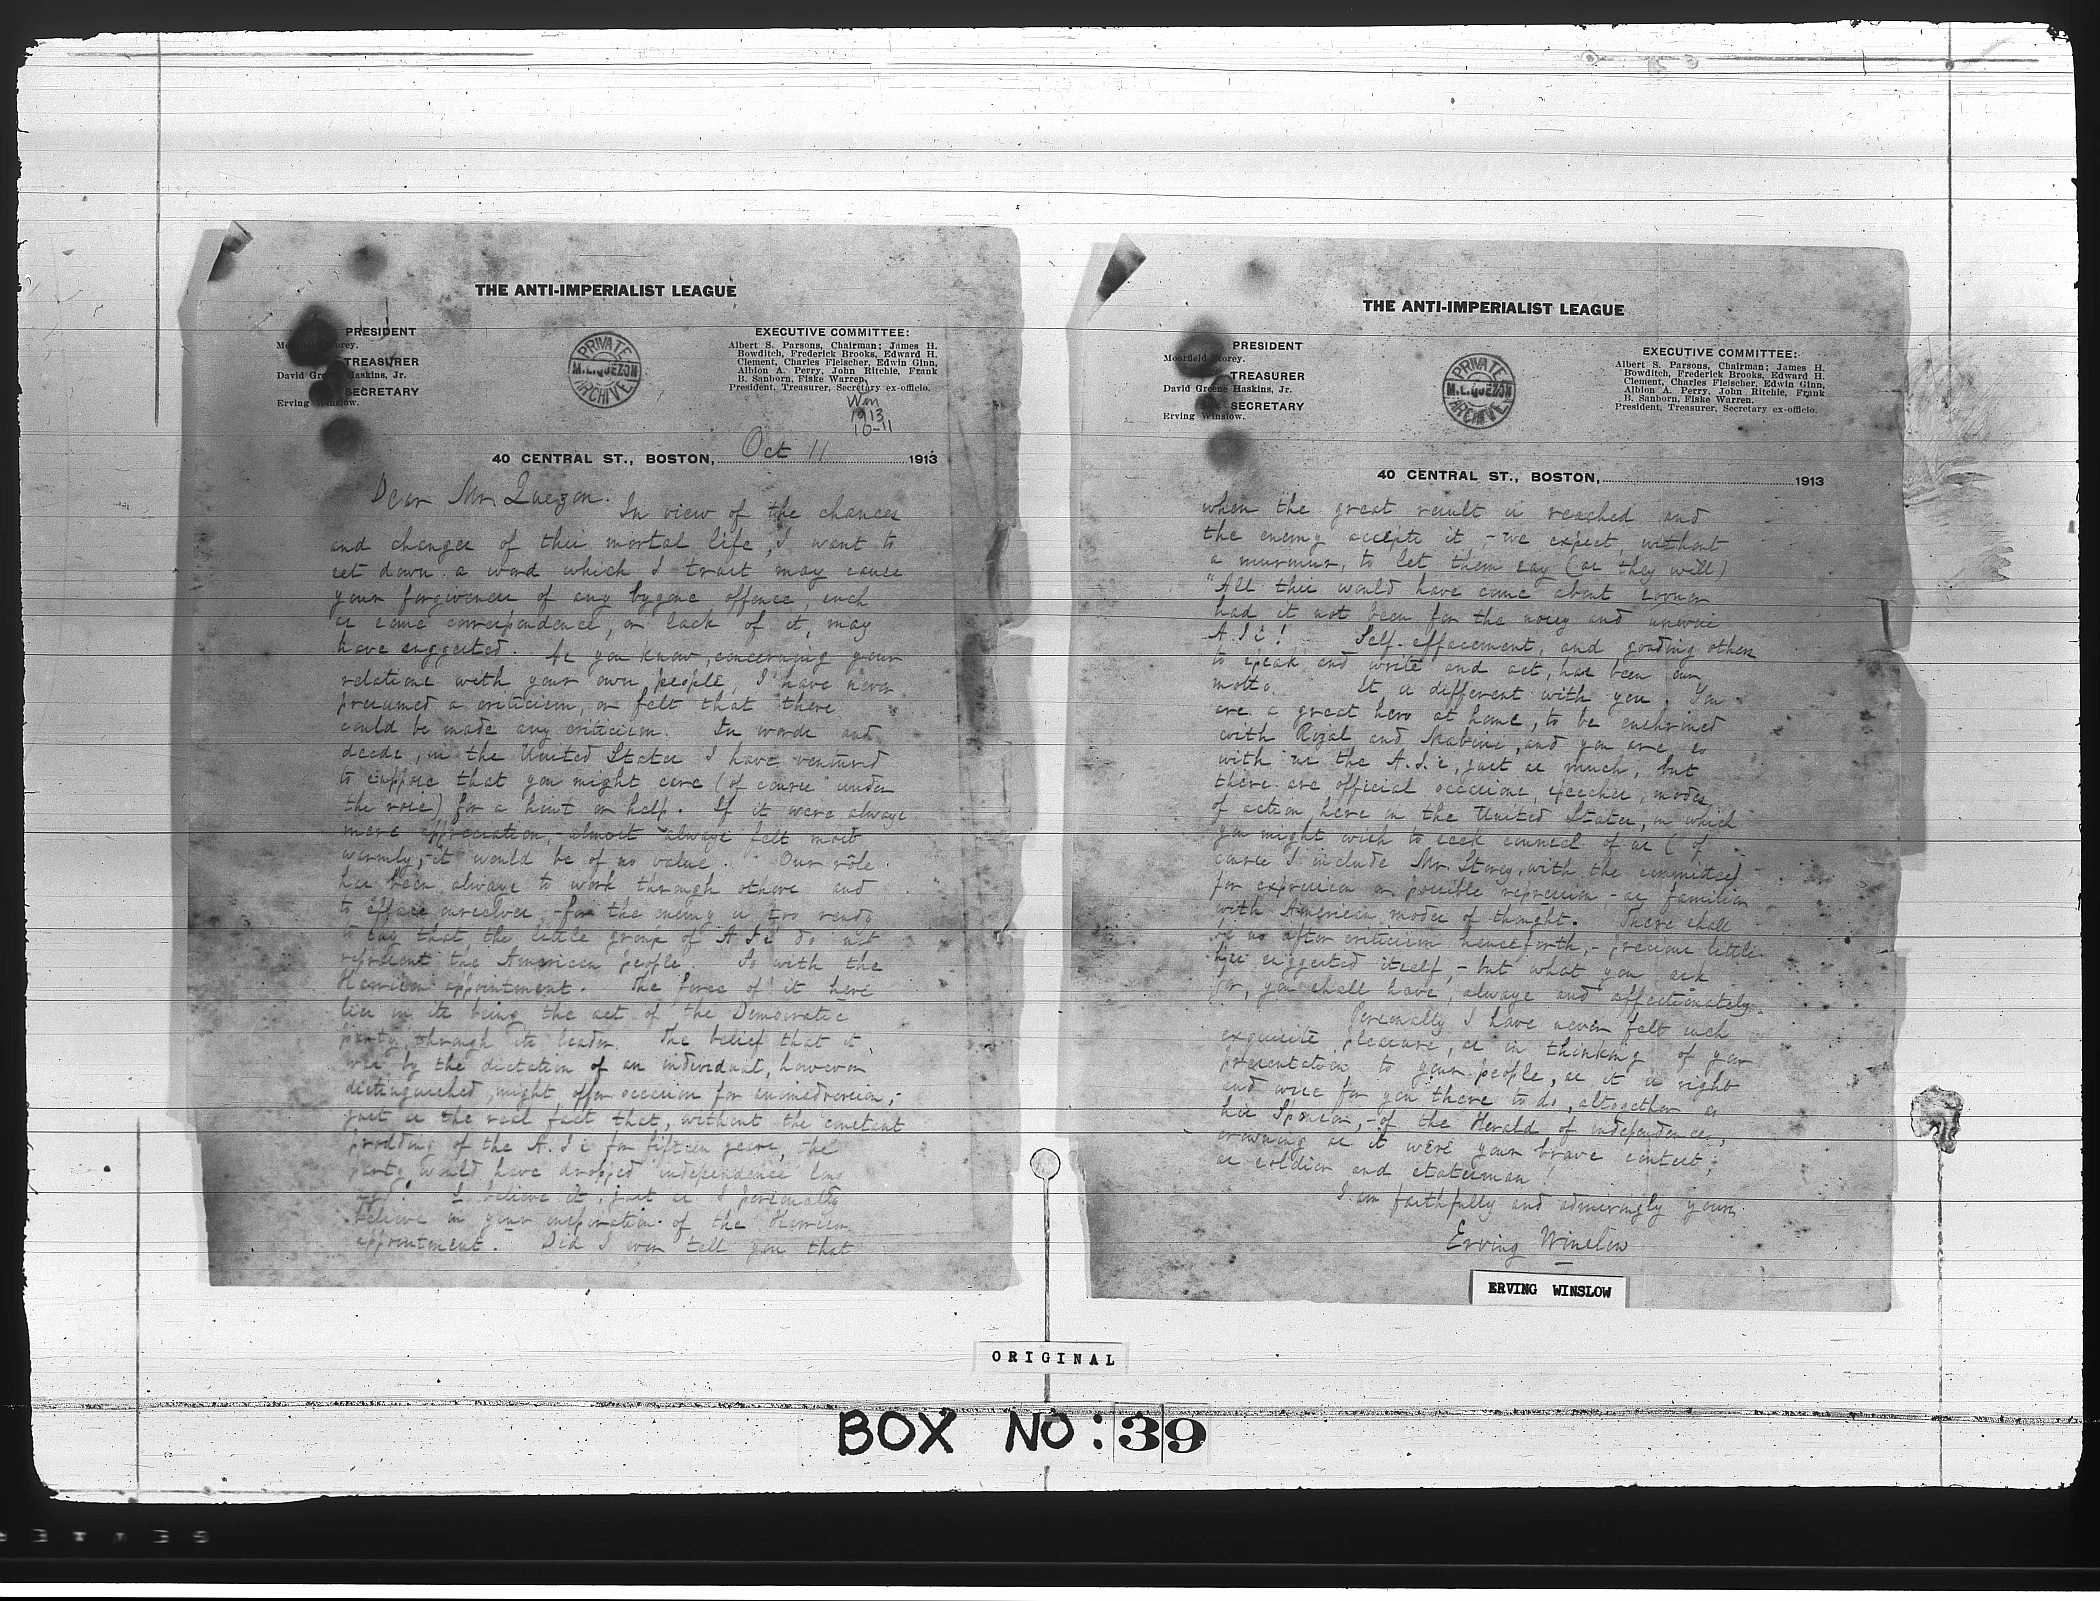 THE ANTI-IMPERIALIST LEAGUE
PRESIDENT
Moorfield Storey.
TREASURER
David Greene Haskins, Jr.
SECRETARY
Erving Winslow.
PRIVATE
M.L.QUEZON
ARCHIVE
EXECUTIVE COMMITTEE:
Albert S. Parsons, Chairman; James H.
Bowditch, Frederick Brooks, Edward H.
Clement, Charles Fleischer, Edwin Ginn,
Albion A. Perry, John Ritchie, Frank
B. Sanborn, Fiske Warren.
President, Treasurer, Secretary ex-officio.
Win
1913
10-11
40 CENTRAL ST., BOSTON, Oct 11 1913
Dear Mr. Quezon.
In view of the chances
and changes of this mortal life, I want to
set down a word which I trust may cause
your forgiveness of any bygone offence, such
as some correspondence, or lack of it, may
have suggested. As you know, concerning your
relations with your own people, I have never
presumed a criticism, or felt that there
could be made any criticism. In words and
deeds, in the United States I have ventured
to suppose that you might care (of course under
the rose) for a hint or help. If it were always
mere appreciation, - almost always felt most
warmly, - it would be of no value. Our rôle
has been always to work through others and
to efface ourselves, - for the enemy is too ready
to say that the little group of A.I.s do not
represent the American people. So with the
Harrison appointment. The force of it here
lies in its being the act of the Democratic
party, through its leader. The belief that it
was by the dictation of an individual, however
distinguished, might offer occasion for animadversion, -
just as the real fact that, without the constant
prodding of the A.I.s for fifteen years, the
party would have dropped independence long
ago. I believe it, just as I personally
believe in your inspiration of the Harrison
appointment. Did I ever tell you that
THE ANTI-IMPERIALIST LEAGUE
PRESIDENT
Moorfield Storey.
TREASURER
David Greene Haskins, Jr.
SECRETARY
Erving Winslow.
PRIVATE
M.L.QUEZON
ARCHIVE
EXECUTIVE COMMITTEE:
Albert S. Parsons, Chairman; James H.
Bowditch, Frederick Brooks, Edward H.
Clement, Charles Fleischer, Edwin Ginn,
Albion A. Perry, John Ritchie, Frank
B. Sanborn, Fiske Warren.
President, Treasurer, Secretary ex-officio.
40 CENTRAL ST., BOSTON, 1913
when the great result is reached and
the enemy accepts it, - we expect, without
a murmur, to let them say (as they will)
"All this would have come about sooner
had it not been for the noisy and unwise
A.I.s! Self-effacement, and goading others
to speak and write and act, has been our
motto. It is different with you. You
are a great hero at home, to be enshrined
with Rizal and Mabini, and you are so
with us the A.I.s, just as much, but
there are official occasions, speeches, modes
of action, here in the United States, in which
you might wish to seek counsel of us (of
course I include Mr. Storey, with the committee)
for expression or possible repression - as familiar
with American modes of thought. There shall
be no after criticism henceforth, - precious little
has suggested itself, - but what you ask
for, you shall have, always and affectionately.
Personally I have never felt such
exquisite pleasure, as in thinking of your
presentation to your people, as it is right
and wise for you there to do, altogether as
his Sponsor, - of the Herald of independence,
crowning as it were your brave contest,
as soldier and statesman!
I am faithfully and admiringly yours
Erving Winslow
ERVING WINSLOW
ORIGINAL
BOX NO: 39